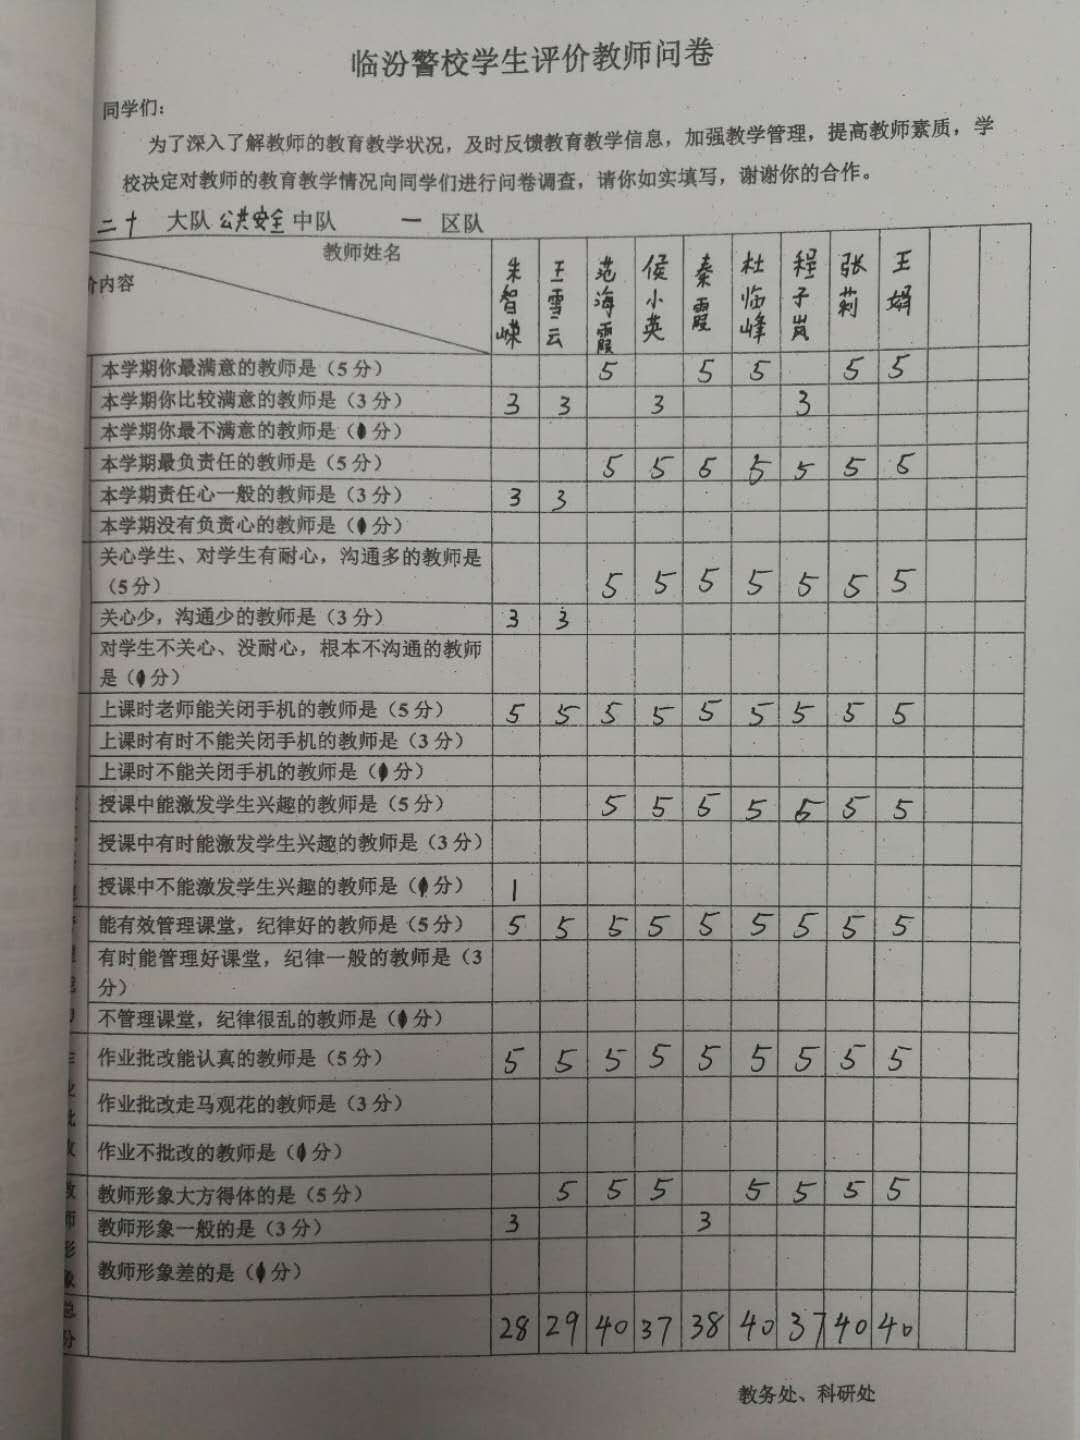 临汾警校学生评价教师问卷
同学们：
为了深入了解教师的教育教学状况，及时反馈教育教学信息，加强教学管理，提高教师素质，学
校决定对教师的教育教学情况向同学们进行问卷调查，请你如实填写，谢谢你的合作。
二十 大队 公共安全 中队 一 区队
教师姓名
价内容
朱智嵘 王雪云 范海霞 侯小英 秦霞 杜临峰 程子岚 张莉 王娟
本学期你最满意的教师是（5分） 5 5 5 5 5
本学期你比较满意的教师是（3分） 3 3 3 3
本学期你最不满意的教师是（1分）
本学期最负责任的教师是（5分） 5 5 5 5 5 5 5
本学期责任心一般的教师是（3分） 3 3
本学期没有负责心的教师是（1分）
关心学生、对学生有耐心，沟通多的教师是
（5分） 5 5 5 5 5 5 5
关心少，沟通少的教师是（3分） 3 3
对学生不关心、没耐心，根本不沟通的教师
是（1分）
上课时老师能关闭手机的教师是（5分） 5 5 5 5 5 5 5 5 5
上课时有时不能关闭手机的教师是（3分）
上课时不能关闭手机的教师是（1分）
授课中能激发学生兴趣的教师是（5分） 5 5 5 5 5 5 5
授课中有时能激发学生兴趣的教师是（3分）
授课中不能激发学生兴趣的教师是（1分） 1
能有效管理课堂，纪律好的教师是（5分） 5 5 5 5 5 5 5 5 5
有时能管理好课堂，纪律一般的教师是（3
分）
不管理课堂，纪律很乱的教师是（1分）
作业批改能认真的教师是（5分） 5 5 5 5 5 5 5 5 5
作业批改走马观花的教师是（3分）
作业不批改的教师是（1分）
教师形象大方得体的是（5分） 5 5 5 5 5 5 5
教师形象一般的是（3分） 3 3
教师形象差的是（1分）
总分 28 29 40 37 38 40 37 40 40
教务处、科研处